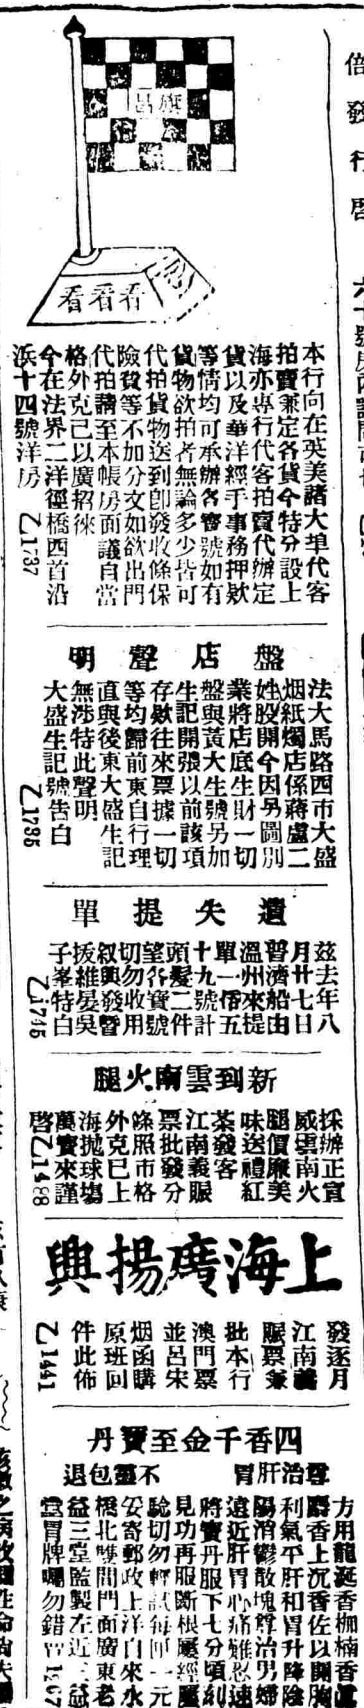 旗昌
看看看
本行向在英美諸大埠代客
拍賣兼定各貨今特分設上
海亦專行代客拍賣代辦定
貨以及華洋經手事務押欵
等情均可承辦各寳號如有
貨物欲拍者無論多少皆可
代拍貨物送到卽發收條保
險費等不加分文如欲出門
代拍請至本帳房面議自當
格外克己以廣招徠
今在法界二洋徑橋西首沿
浜十四號洋房
乙1737
盤店聲明
法大馬路西市大盛
烟紙燭店係蔣盧二
姓股開今因另圖別
業將店底生財一切
盤與黃大生號另加
生記開張以前該項
存欵往來票據一切
等均歸前東自行理
直與後東大盛生記
無涉特此聲明
大盛生記號告白
乙1735
遺失提單
茲去年八
月廿七日
普濟船由
溫州來提
單一佰五
十九號計
頭髮二件
望各寶號
切勿收用
叙興發暨
拔維晏吳
子峯特白
乙1745
新到雲南火腿
採辦正宣
威雲南火
腿價廉美
味送禮紅
茶發客
江南義賑
票批發分
條照市格
外克已上
海拋球塲
萬寶來謹
啓乙1488
上海廣揚興
發逐月
江南義
賑票兼
批本行
澳門票
並呂宋
烟函購
原班回
件此佈
乙1441
四香千金至寶丹
專治肝胃
不靈包退
方用龍涎香枷楠香
麝香上沉香佐以開胸
利氣平肝和胃升降陰
陽消鬱散塊專治男婦
遠近肝胃心痛難忍速
將寶丹服下七分頃刻
見功再服斷根屢經屢
驗切勿輕試每服一元
妥寄郵政上洋自來水
橋北雙間門面廣東老
益三堂監製左近三益
堂冒牌囑勿錯